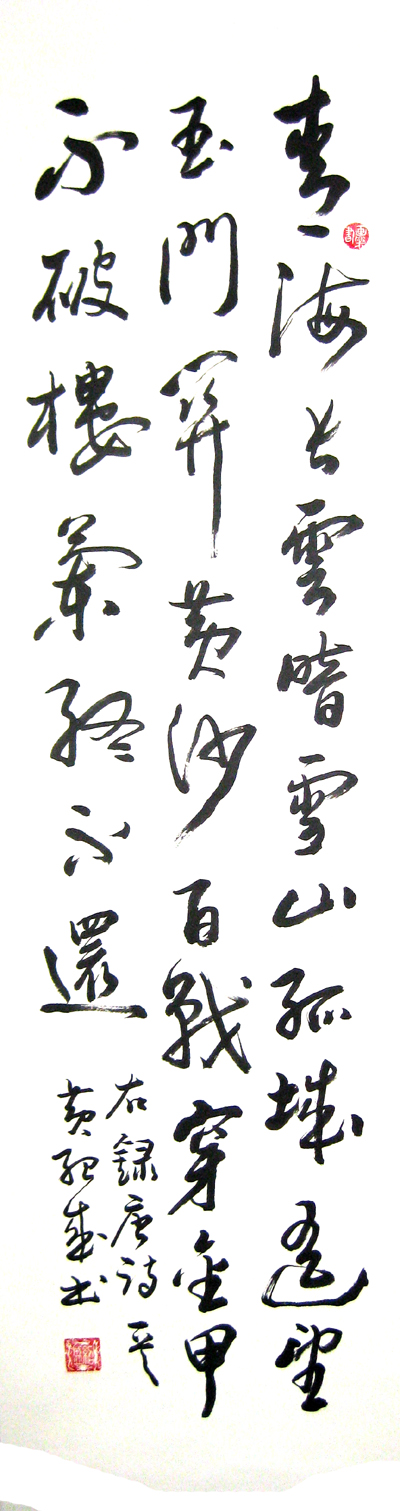 青海長雲暗雪山孤城遙望
玉門關黃沙百戰穿金甲
不破樓蘭終不還
右錄唐詩
黃成书